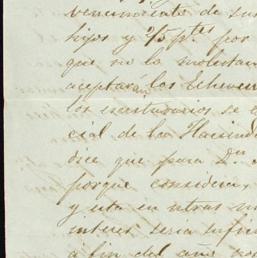 vencimiento de sus
hijos y 2/5 ptes por
que no la molestan
aceptarán los Echever
en escriturarios se e
cial de la Haciend
dice que para Dn
porque considera,
y esta en otras m
interes seria sufici
a fin del año